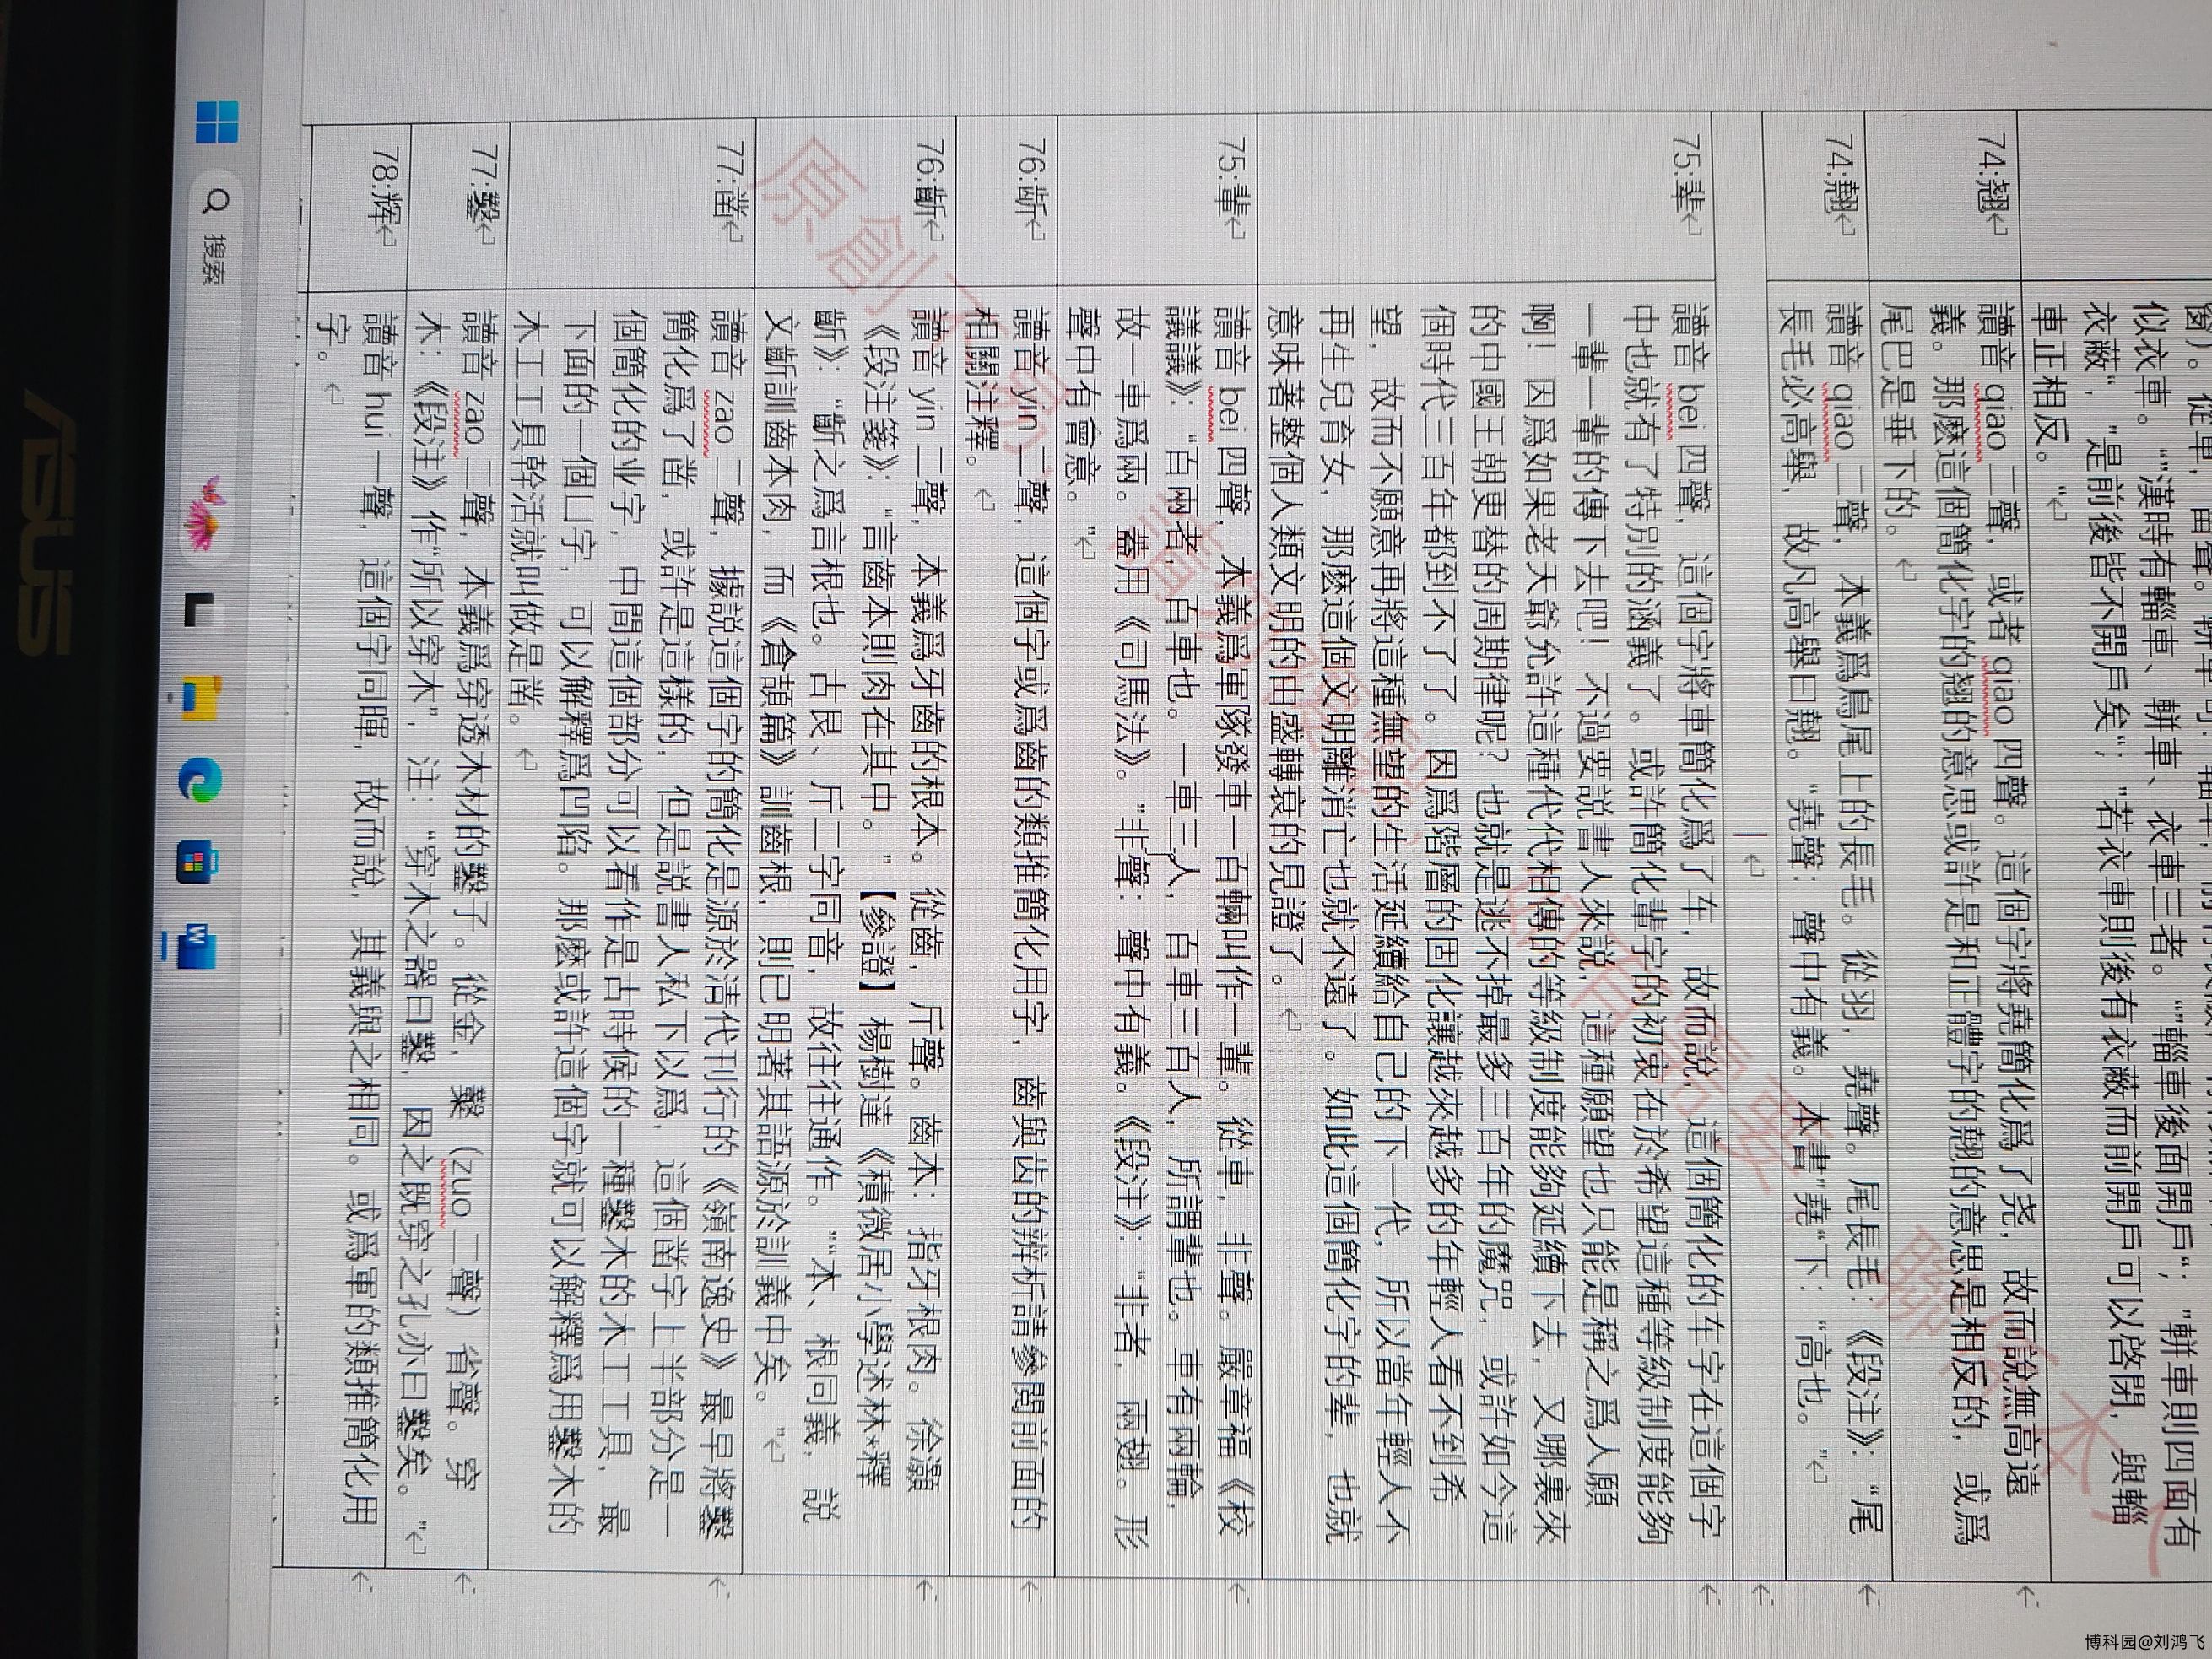 似衣車。“”漢時有輜車、軿車、衣車三者。“”輜車後面開戶“；”軿車則四面有
衣蔽“，”是前後皆不開戶矣“；”若衣車則後有衣蔽而前開戶可以啓閉，與輜
車正相反。“
74:翘
讀音 qiao 二聲，或者 qiao 四聲。這個字將堯簡化爲了尧，故而說無高遠
義。那麼這個簡化字的翘的意思或許是和正體字的翹的意思是相反的，或爲
尾巴是垂下的。
74:翹
讀音 qiao 二聲，本義爲鳥尾上的長毛。從羽，堯聲。尾長毛：《段注》：“尾
長毛必高舉，故凡高舉曰翹。“堯聲：聲中有義。本書”堯“下：“高也。”
75:辈
讀音 bei 四聲，這個字將車簡化爲了车，故而說，這個簡化的车字在這個字
中也就有了特別的涵義了。或許簡化輩字的初衷在於希望這種等級制度能夠
一輩一輩的傳下去吧！不過要說書人來說，這種願望也只能是稱之爲人願
啊！因爲如果老天爺允許這種代代相傳的等級制度能夠延續下去，又哪裏來
的中國王朝更替的周期律呢？也就是逃不掉最多三百年的魔咒，或許如今這
個時代三百年都到不了了。因爲階層的固化讓越來越多的年輕人看不到希
望，故而不願意再將這種無望的生活延續給自己的下一代，所以當年輕人不
再生兒育女，那麼這個文明離消亡也就不遠了。如此這個簡化字的辈，也就
意味著整個人類文明的由盛轉衰的見證了。
75:輩
讀音 bei 四聲，本義爲軍隊發車一百輛叫作一輩。從車，非聲。嚴章福《校
議議》：“百兩者，百車也。一車三人，百車三百人，所謂輩也。車有兩輪，
故一車爲兩。蓋用《司馬法》。”非聲：聲中有義。《段注》：“非者，兩翅。形
聲中有會意。”
76:龂
讀音 yin 二聲，這個字或爲齒的類推簡化用字，齒與齿的辨析請參閱前面的
相關注釋。
76:齗
讀音 yin 二聲，本義爲牙齒的根本。從齒，斤聲。齒本：指牙根肉。徐灝
《段注箋》：“言齒本則肉在其中。”【參證】楊樹達《積微居小學述林*釋
齗》：“齗之爲言根也。古艮、斤二字同音，故往往通作。”“本、根同義，說
文齗訓齒本肉，而《倉頡篇》訓齒根，則已明著其語源於訓義中矣。”
77:凿
讀音 zao 二聲，據說這個字的簡化是源於清代刊行的《嶺南逸史》最早將鑿
簡化爲了凿，或許是這樣的，但是說書人私下以爲，這個凿字上半部分是一
個簡化的业字，中間這個部分可以看作是古時候的一種鑿木的木工工具，最
下面的一個凵字，可以解釋爲凹陷。那麼或許這個字就可以解釋爲用鑿木的
木工工具幹活就叫做是凿。
77:鑿
讀音 zao 二聲，本義爲穿透木材的鑿子。從金，糳（zuo 二聲）省聲。穿
木：《段注》作“所以穿木”，注：“穿木之器曰鑿，因之既穿之孔亦曰鑿矣。”
78:辉
讀音 hui 一聲，這個字同暉，故而說，其義與之相同。或爲軍的類推簡化用
字。
搜索
ASUS
博科园@刘鸿飞